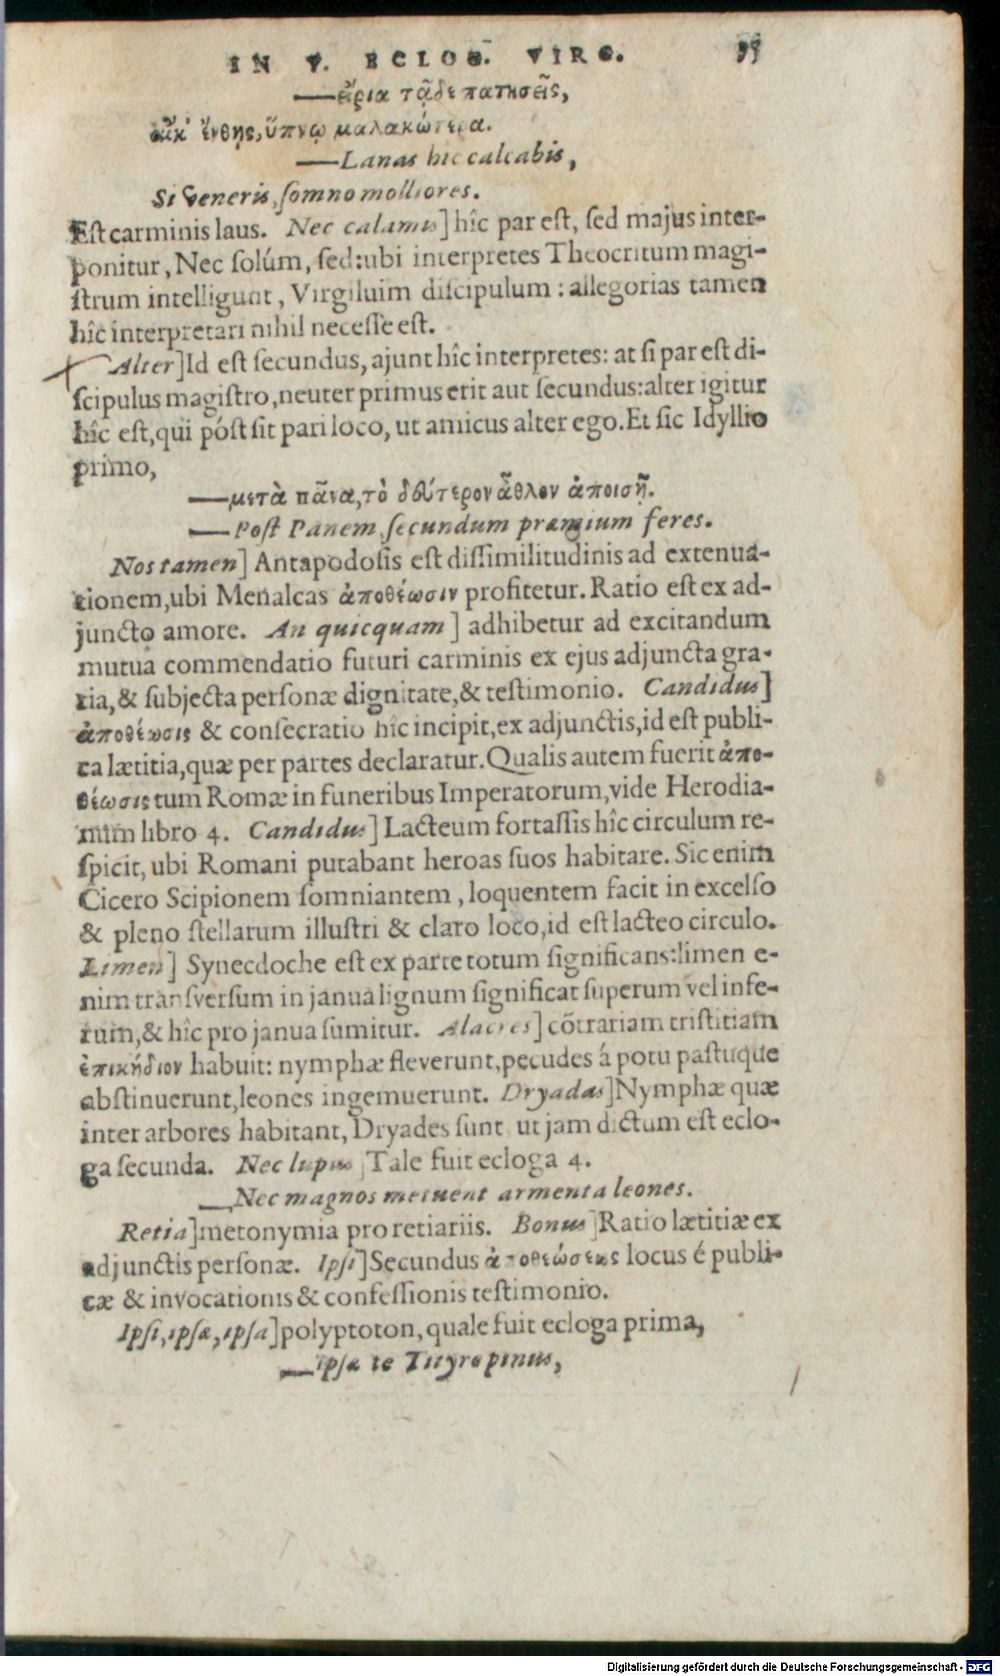 IN V. ECLOG. VIRG. 55
—εἴρια τᾷδε πατησεῖς,
αἴκ' ἔνθῃς, ὕπνῳ μαλακώτερα.
—Lanas hic calcabis,
Si veneris, somno molliores.
Est carminis laus. Nec calamis] hîc par est, sed majus inter-
ponitur, Nec solúm, sed: ubi interpretes Theocritum magi-
strum intelligunt, Virgiluim discipulum: allegorias tamen
hîc interpretari nihil necesse est.
Alter] Id est secundus, ajunt hîc interpretes: at si par est di-
scipulus magistro, neuter primus erit aut secundus: alter igitur
hîc est, qui póst sit pari loco, ut amicus alter ego. Et sic Idyllio
primo,
—μετὰ πᾶνα, τὸ δεύτερον ἆθλον ἀποισῇ.
—Post Panem secundum præmium feres.
Nos tamen] Antapodosis est dissimilitudinis ad extenua-
tionem, ubi Menalcas ἀποθέωσιν profitetur. Ratio est ex ad-
juncto amore. An quicquam] adhibetur ad excitandum
mutua commendatio futuri carminis ex ejus adjuncta gra-
tia, & subjecta personæ dignitate, & testimonio. Candidus]
ἀποθέωσις & consecratio hîc incipit, ex adjunctis, id est publi-
ca lætitia, quæ per partes declaratur. Qualis autem fuerit ἀπο-
θέωσις tum Romæ in funeribus Imperatorum, vide Herodia-
num libro 4. Candidus] Lacteum fortassis hîc circulum re-
spicit, ubi Romani putabant heroas suos habitare. Sic enim
Cicero Scipionem somniantem, loquentem facit in excelso
& pleno stellarum illustri & claro loco, id est lacteo circulo.
Limen] Synecdoche est ex parte totum significans: limen e-
nim transversum in janua lignum significat superum vel infe-
rum, & hîc pro janua sumitur. Alacres] cõtrariam tristitiam
ἐπικήδιον habuit: nymphæ fleverunt, pecudes á potu pastuque
abstinuerunt, leones ingemuerunt. Dryadas] Nymphæ quæ
inter arbores habitant, Dryades sunt ut jam dictum est eclo-
ga secunda. Nec lupus] Tale fuit ecloga 4.
—Nec magnos metuent armenta leones.
Retia] metonymia pro retiariis. Bonus] Ratio lætitiæ ex
adjunctis personæ. Ipsi] Secundus ἀποθεώσεως locus é publi-
cæ & invocationis & confessionis testimonio.
Ipsi, ipsæ, ipsa] polyptoton, quale fuit ecloga prima,
—ipsæ te Tityre pinus,
Digitalisierung gefördert durch die Deutsche Forschungsgemeinschaft - DFG